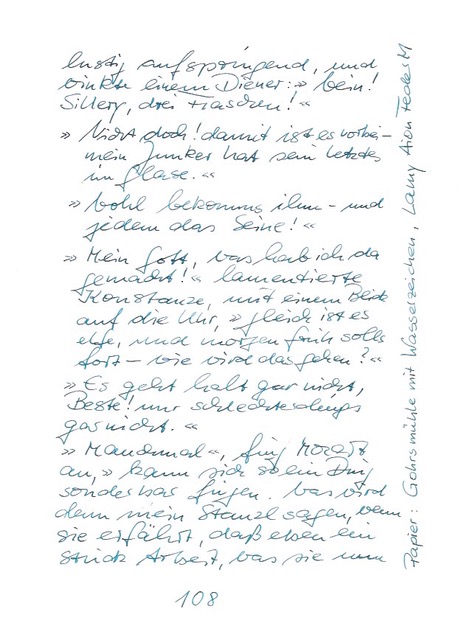 lustig aufspringend, und
winkte einem Diener: » Wein!
Sillery, drei Flaschen! «
» Nicht doch! damit ist es vorbei –
mein Junker hat sein letztes
im Glase. «
» Wohl bekomms ihm – und
jedem das Seine! «
» Mein Gott, was hab ich da
gemacht! « lamentierte
Konstanze, mit einem Blick
auf die Uhr, » gleich ist es
elfe, und morgen früh solls
fort – wie wird das gehen? «
» Es geht halt gar nicht,
Beste! nur schlechterdings
gar nicht. «
» Manchmal «, fing Mozart
an, » kann sich so ein Ding
sonderbar fügen. Was wird
denn mein Stanzl sagen, wenn
sie erfährt, daß eben ein
Stück Arbeit, das sie nun
108
Papier: Gohrsmühle mit Wasserzeichen, Lamy Aion Feder M